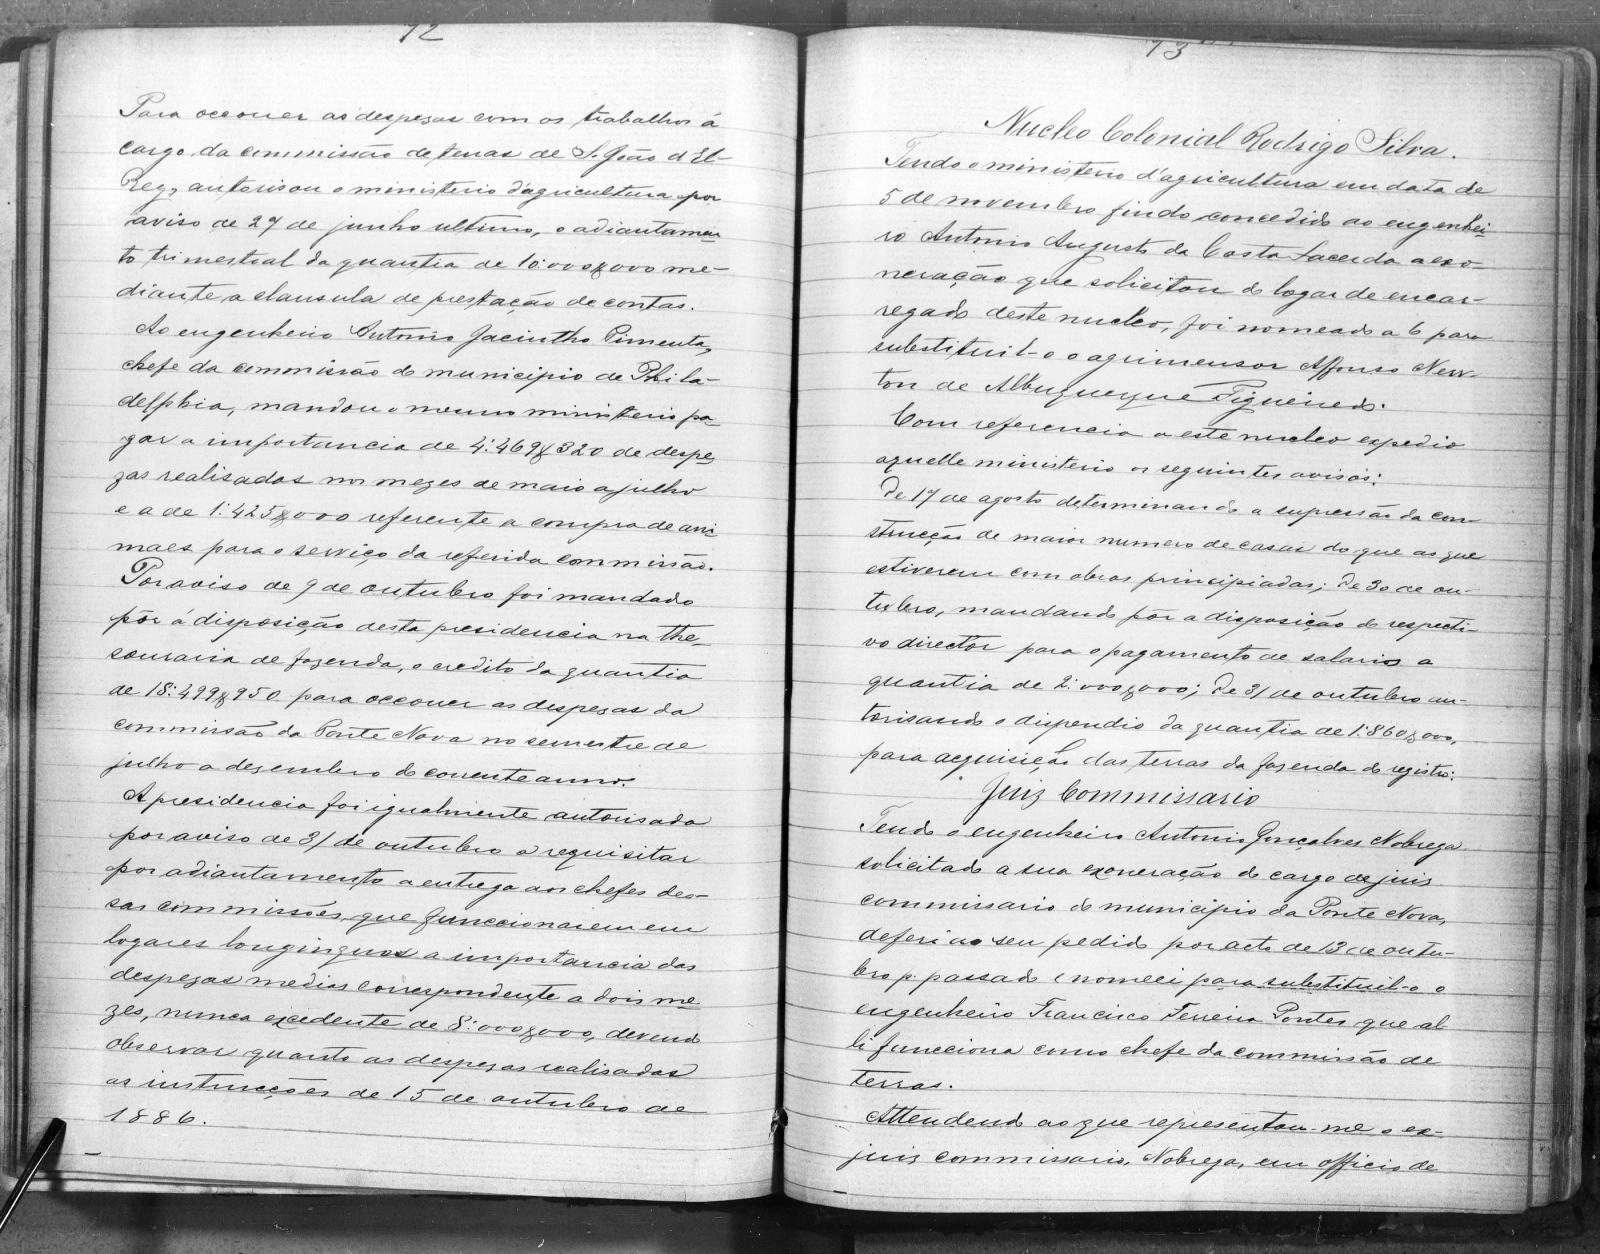 72
Para occorrer as despezas com os trabalhos á
cargo da commissão de terras de S. João d'El-
Rey, autorisou o ministerio d'agricultura por
aviso de 27 de junho ultimo, o adiantamen
to trimestral da quantia de 10:000$000 me-
diante a clausula de prestação de contas.
Ao engenheiro Antonio Jacintho Pimenta,
chefe da commissão do municipio de Phila-
delphia, mandou o mesmo ministerio pa-
gar a importancia de 4:469$320 de despe
zas realisadas nos mezes de maio a julho
e a de 1:425$000 referente a compra de ani
maes para o serviço da referida commissão.
Por aviso de 9 de outubro foi mandado
pôr á disposição desta presidencia na the-
souraria de fazenda, o credito da quantia
de 18:499$950 para occorrer as despezas da
commissão da Ponte Nova no semestre de
julho a dezembro do corrente anno.
A presidencia foi igualmente autorisada
por aviso de 31 de outubro a requisitar
por adiantamento a entrega aos chefes des-
sas commissões, que funccionarem em
logares longinquos a importancia das
despezas medias correspondente a dois me
zes, nunca excedente de 8:000$000, devend
observar quanto as despezas realisadas
as instrucções de 15 de outubro de
1886.
73
Nucleo Colonial Rodrigo Silva.
Tendo o ministerio d'agricultura em data de
5 de novembro findo concedido ao engenhei
ro Antonio Augusto da Costa Lacerda a exo-
neração que solicitou do logar de encar-
regado deste nucleo, foi nomeado a 6 para
substituil-o o agrimensor Affonso New-
ton de Albuquerque Figueiredo.
Com referencia a este nucleo expedio
aquelle ministerio os seguintes avisos:
De 17 de agosto determinando a supressão da con
strucção de maior numero de casas do que as que
estiverem com obras principiadas; De 30 de ou-
tubro, mandando pôr a disposição do respecti-
vo director para o pagamento de salarios a
quantia de 2:000$000; De 31 de outubro au-
torisando o dispendio da quantia de 1:860$000,
para acquisição das terras da fazenda do registro.
Juiz Commissario
Tendo o engenheiro Antonio Gonçalves Nobrega
solicitado a sua exoneração do cargo de juis
commissario do municipio da Ponte Nova,
deferi ao seu pedido por acto de 13 de outu-
bro p. passado e nomeei para substituil-o o
engenheiro Francisco Ferreira Pontes que al
li funcciona como chefe da commissão de
terras.
Attendendo ao que representou-me o ex-
juiz commissario, Nobrega, em officio de